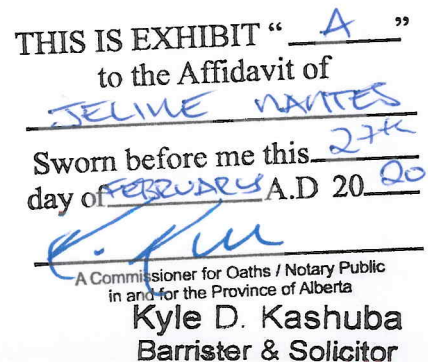 THIS IS EXHIBIT “ A ”
to the Affidavit of
JELINE NANTES
Sworn before me this 27th
day of FEBRUARY A.D 20 20
A Commissioner for Oaths / Notary Public
in and for the Province of Alberta
Kyle D. Kashuba
Barrister & Solicitor